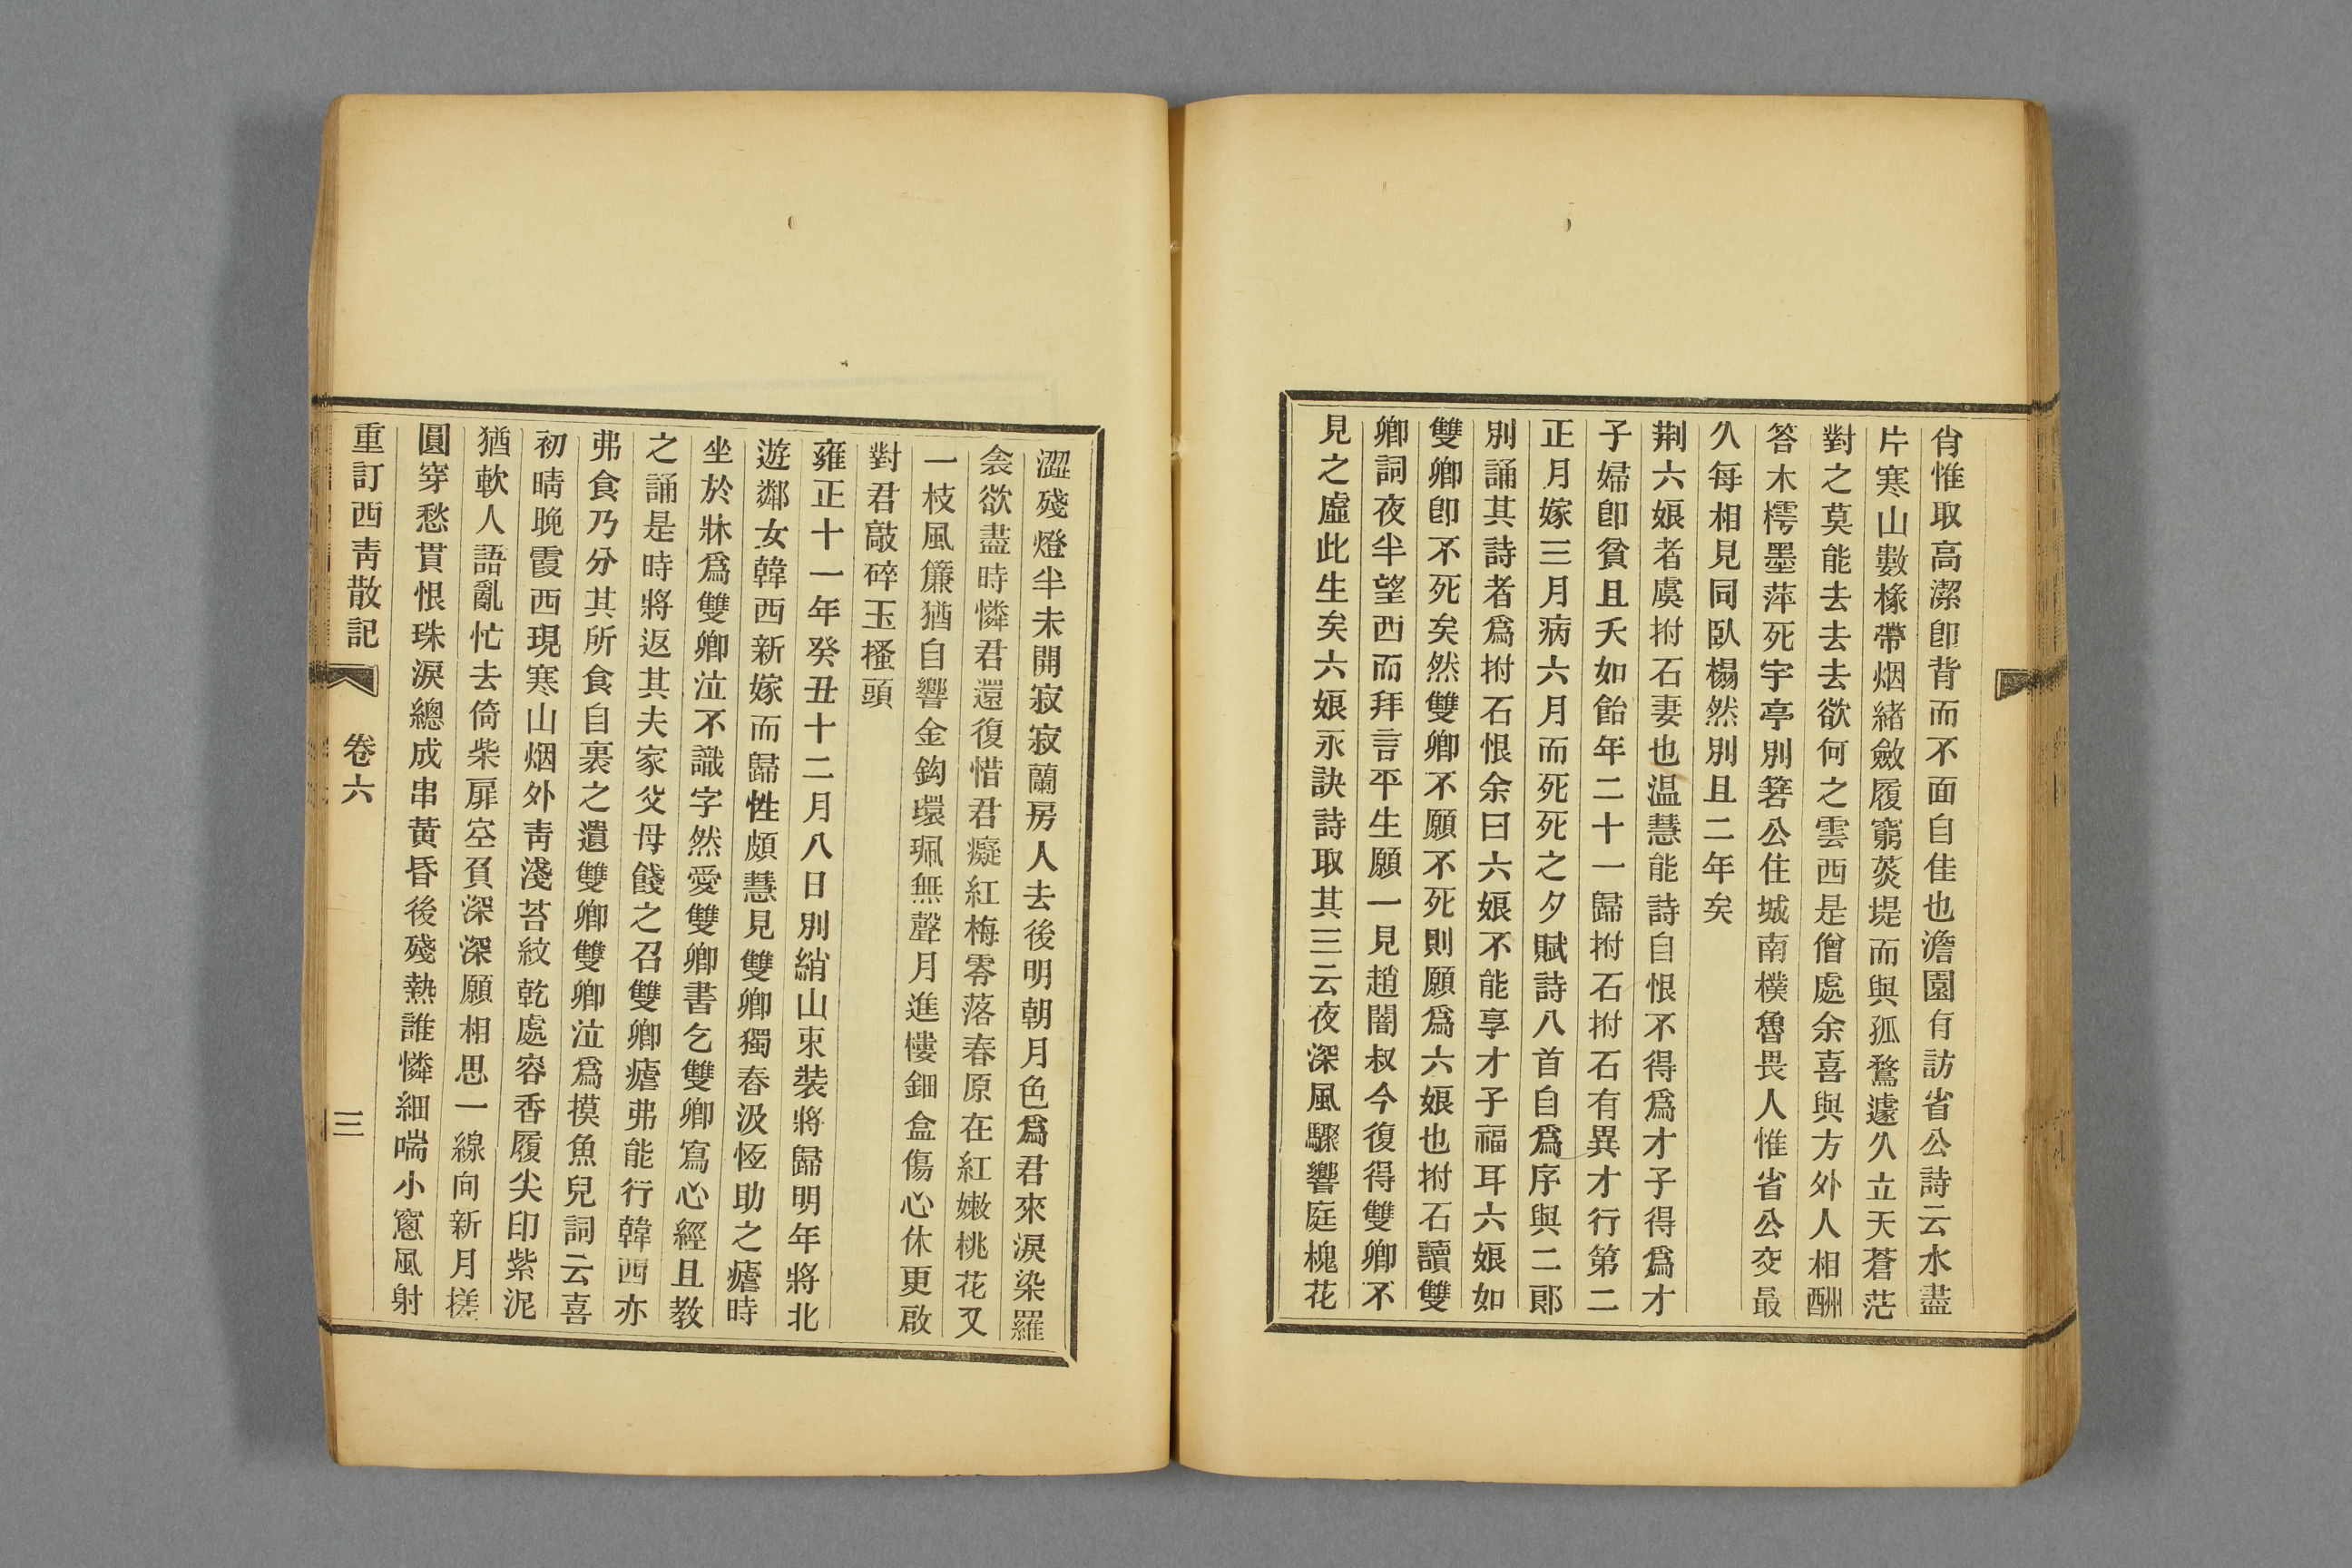 肯惟取高潔卽背而不面自佳也澹園有訪省公詩云水盡
片寒山數椽帶烟緒斂履窮菼堤而與孤鶩遽久立天蒼茫
對之莫能去去去欲何之雲西是僧處余喜與方外人相酬
答木樗墨萍死宇亭別箬公住城南樸魯畏人惟省公交最
久每相見同臥榻然別且二年矣
荆六娘者虞拊石妻也温慧能詩自恨不得爲才子得爲才
子婦卽貧且夭如飴年二十一歸拊石拊石有異才行第二
正月嫁三月病六月而死死之夕賦詩八首自爲序與二郞
別誦其詩者爲拊石恨余曰六娘不能享才子福耳六娘如
雙卿卽不死矣然雙卿不願不死則願爲六娘也拊石讀雙
卿詞夜半望西而拜言平生願一見趙闇叔今復得雙卿不
見之虛此生矣六娘永訣詩取其三云夜深風驟響庭槐花
澀殘燈半未開寂寂蘭房人去後明朝月色爲君來淚染羅
衾欲盡時憐君還復惜君癡紅梅零落春原在紅嫩桃花又
一枝風簾猶自響金鈎環珮無聲月進慺鈿盒傷心休更啟
對君敲碎玉搔頭
雍正十一年癸丑十二月八日別綃山束裝將歸明年將北
遊鄰女韓西新嫁而歸性頗慧見雙卿獨舂汲恆助之瘧時
坐於牀爲雙卿泣不識字然愛雙卿書乞雙卿寫心經且教
之誦是時將返其夫家父母餞之召雙卿瘧弗能行韓西亦
弗食乃分其所食自裹之遺雙卿雙卿泣爲摸魚兒詞云喜
初晴晚霞西現寒山烟外靑淺苔紋乾處容香履尖印紫泥
猶軟人語亂忙去倚柴扉空負深深願相思一線向新月搓
圓穿愁貫恨珠淚總成串黃昏後殘熱誰憐細喘小窻風射
重訂西靑散記 卷六 三